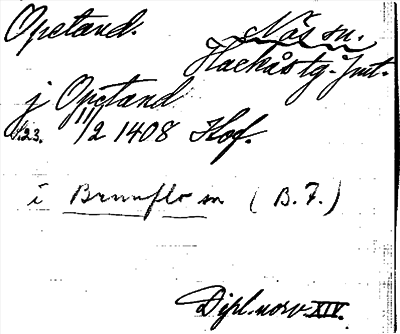 Opetand. Näs sn.
Hackås tg. Jmt.
j Opetand
s.23. 11/2 1408 Hof.
i Brunflo sn (B.F.)
Dipl. norv. XIV.